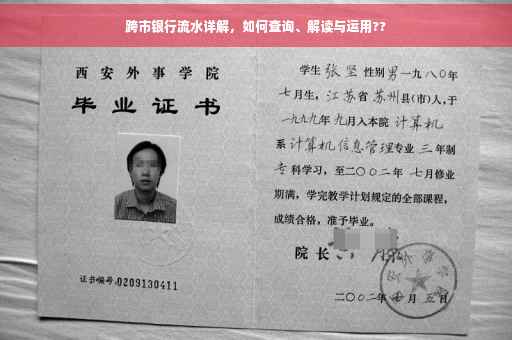 跨市银行流水详解，如何查询、解读与运用??
西安外事学院
毕业证书
证书编号:0209130411
学生 张坚 性别 男 一九八〇年
七月生，江苏省苏州县(市)人，于
一九九九年九月入本院 计算机
系 计算机信息管理 专业 三 年制
专科学习，至二〇〇二年 七月修业
期满，学完教学计划规定的全部课程，
成绩合格，准予毕业。
院长
二〇〇二年 月五日